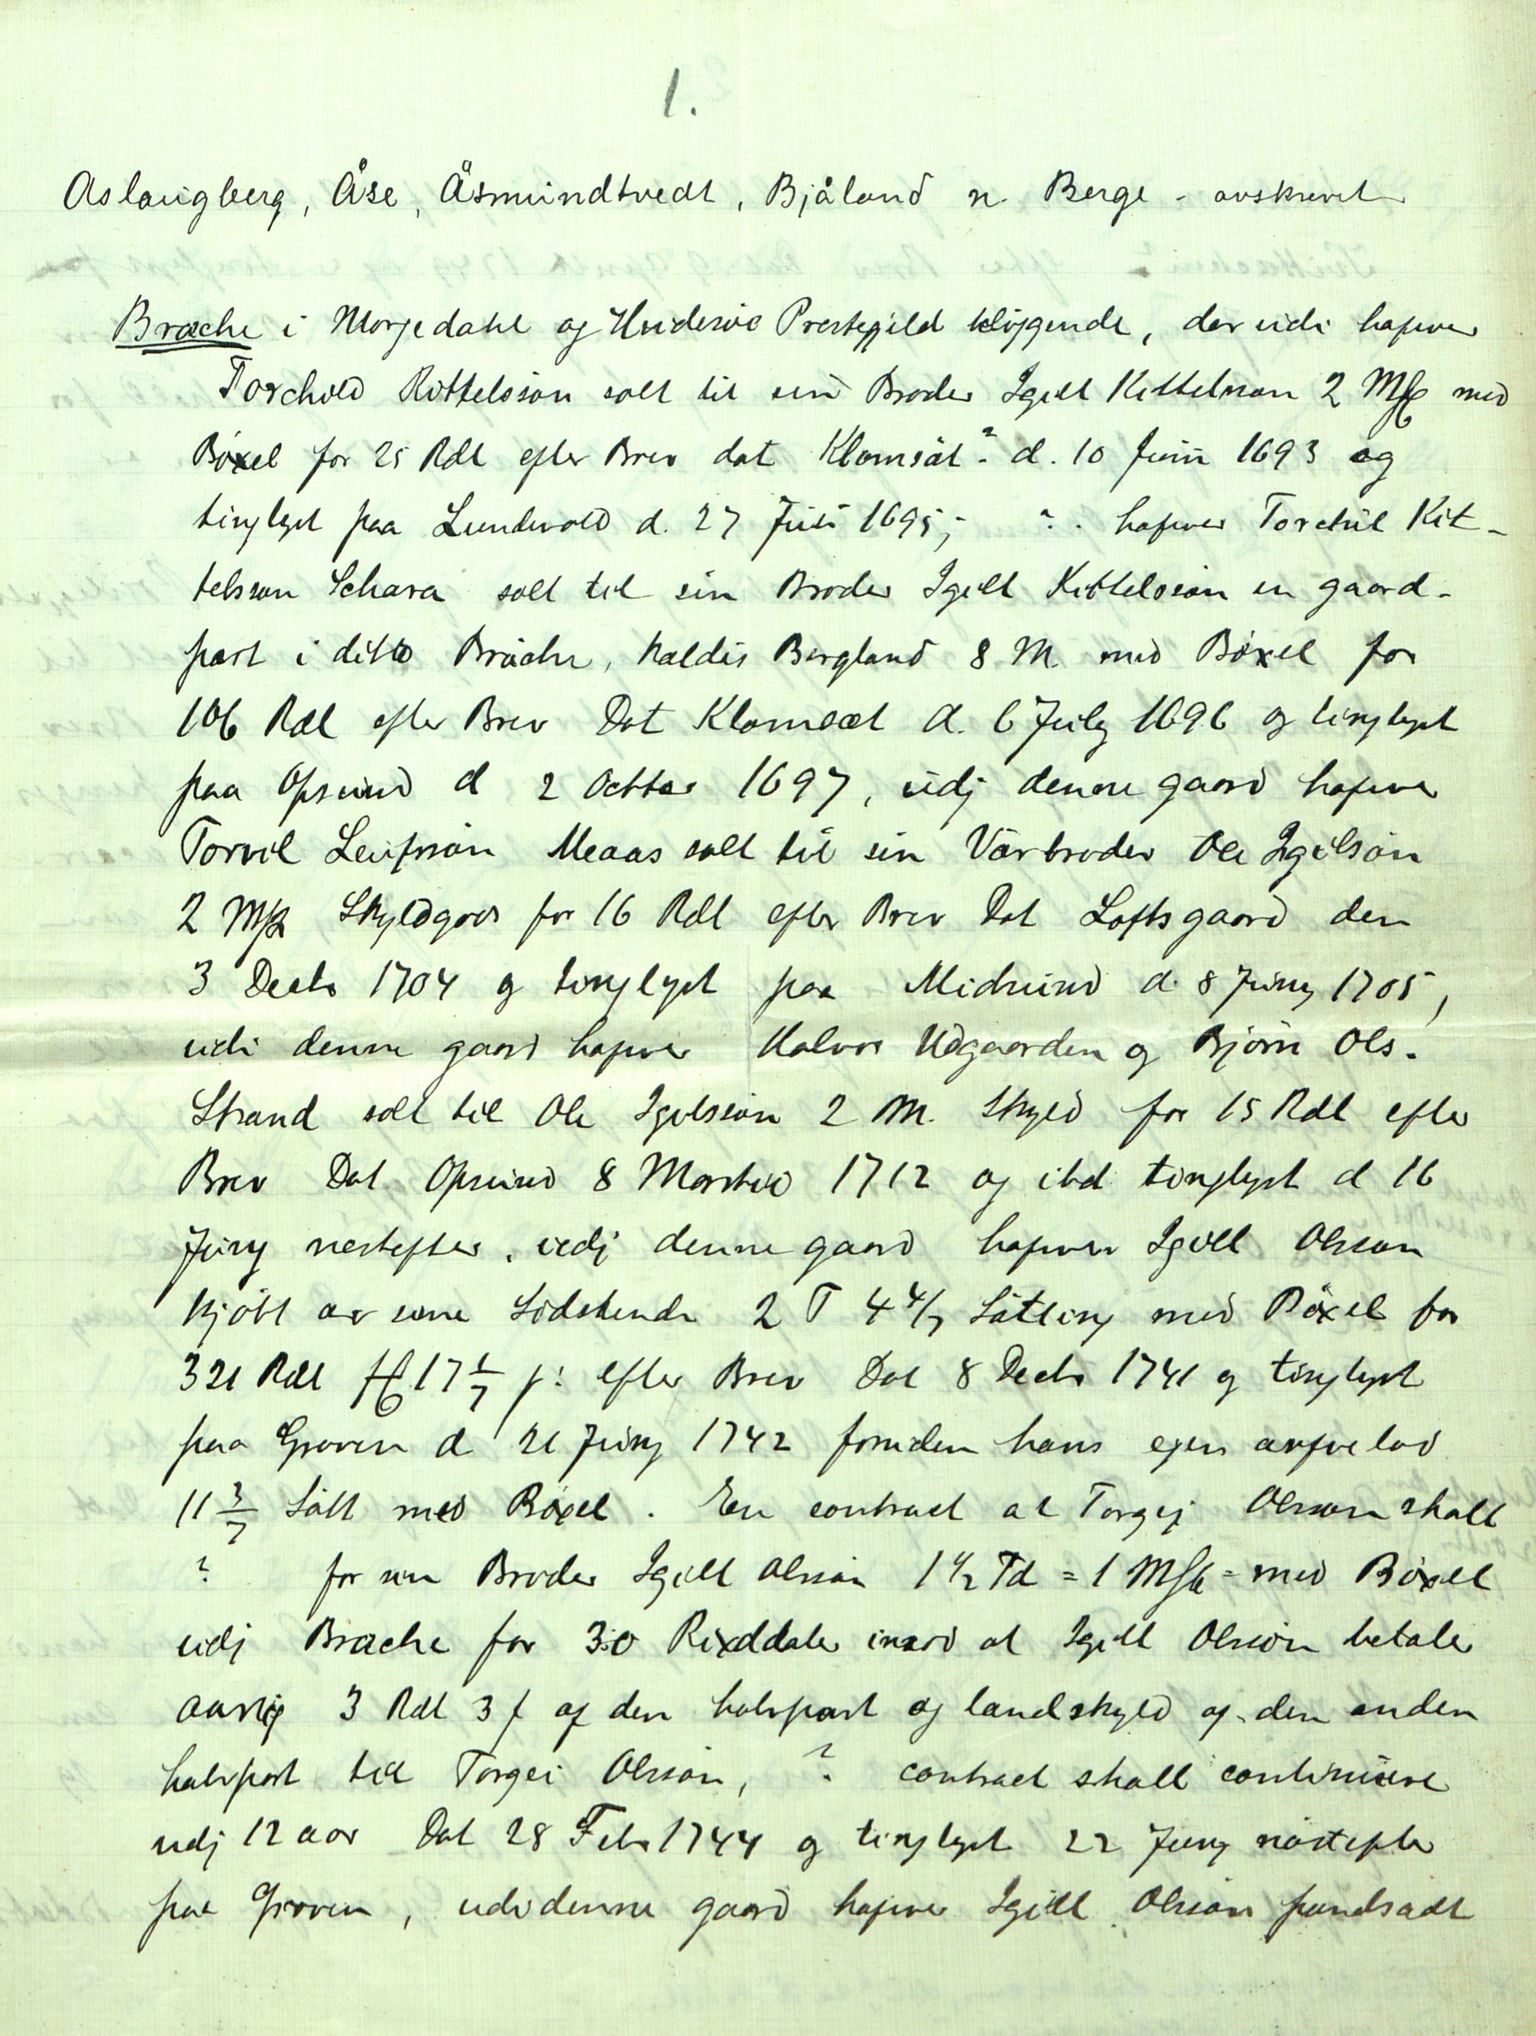 1.
Aslaugberg, Åse, Åsmundtvedt, Bjåland n. Berge - avskrevet
Bræche i Morgedahl og Hvidesøe Prestegield beliggende, der udi hafver
Torchild Kittelssøn solt til sin Broder Igell Kittelssøn 2 M med
Bøxel for 25 Rdl efter Brev dat Klomsæt? d. 10 Juni 1693 og
tinglyst paa Lundevold d. 27 Juli 1695, ? hafver Torchil Kit-
telssøn Schara solt til sin Broder Igell Kittelssøn en gaard-
part i ditto Bræche, kaldis Bergland 8 M. med Bøxel for
106 Rdl efter Brev Dat Klomsæt d. 6 July 1696 og tinglyst
paa Opsund d 2 Octbr 1697, udj denne gaard hafver
Torvil Leifssøn Meaas solt til sin Værbroder Ole Igelsøn
2 M Skyldgods for 16 Rdl efter Brev Dat Loftsgaard den
3 Decbr 1704 og tinglyst paa Midsund d. 8 Juny 1705,
udi denne gaard hafver Halvor Udgaarden og Bjørn Ols.
Strand solt til Ole Igelssøn 2 M. Skyld for 15 Rdl efter
Brev Dat Opsund 8 Martii 1712 og ibd tinglyst d 16
Juny nestefter, udj denne gaard hafver Igell Olssøn
kjøbt av sine Sødskende 2 T 4 4/7 Sætting med Bøxel for
321 Rdl 17 1/7 s: efter Brev Dat 8 Decbr 1741 og tinglyst
paa Groven d 21 Juny 1742 foruden hans egen arfvelod
11 3/7 Sætt med Bøxel. En contract at Torgej Olssøn skall
? for sin Broder Igell Olssøn 1 1/2 Td = 1 M = med Bøxel
udj Bræche for 30 Rixddaler imod at Igell Olssøn betaler
aarlig 3 Rdl 3 f af den halvpart og landskyld af den anden
halvpart til Torgei Olssøn, ? contract skall continuere
udj 12 aar Dat 28 Febr 1744 og tinglyst 22 Juny næstefter
paa Groven, udi denne gaard hafver Igell Olssøn pandsadt